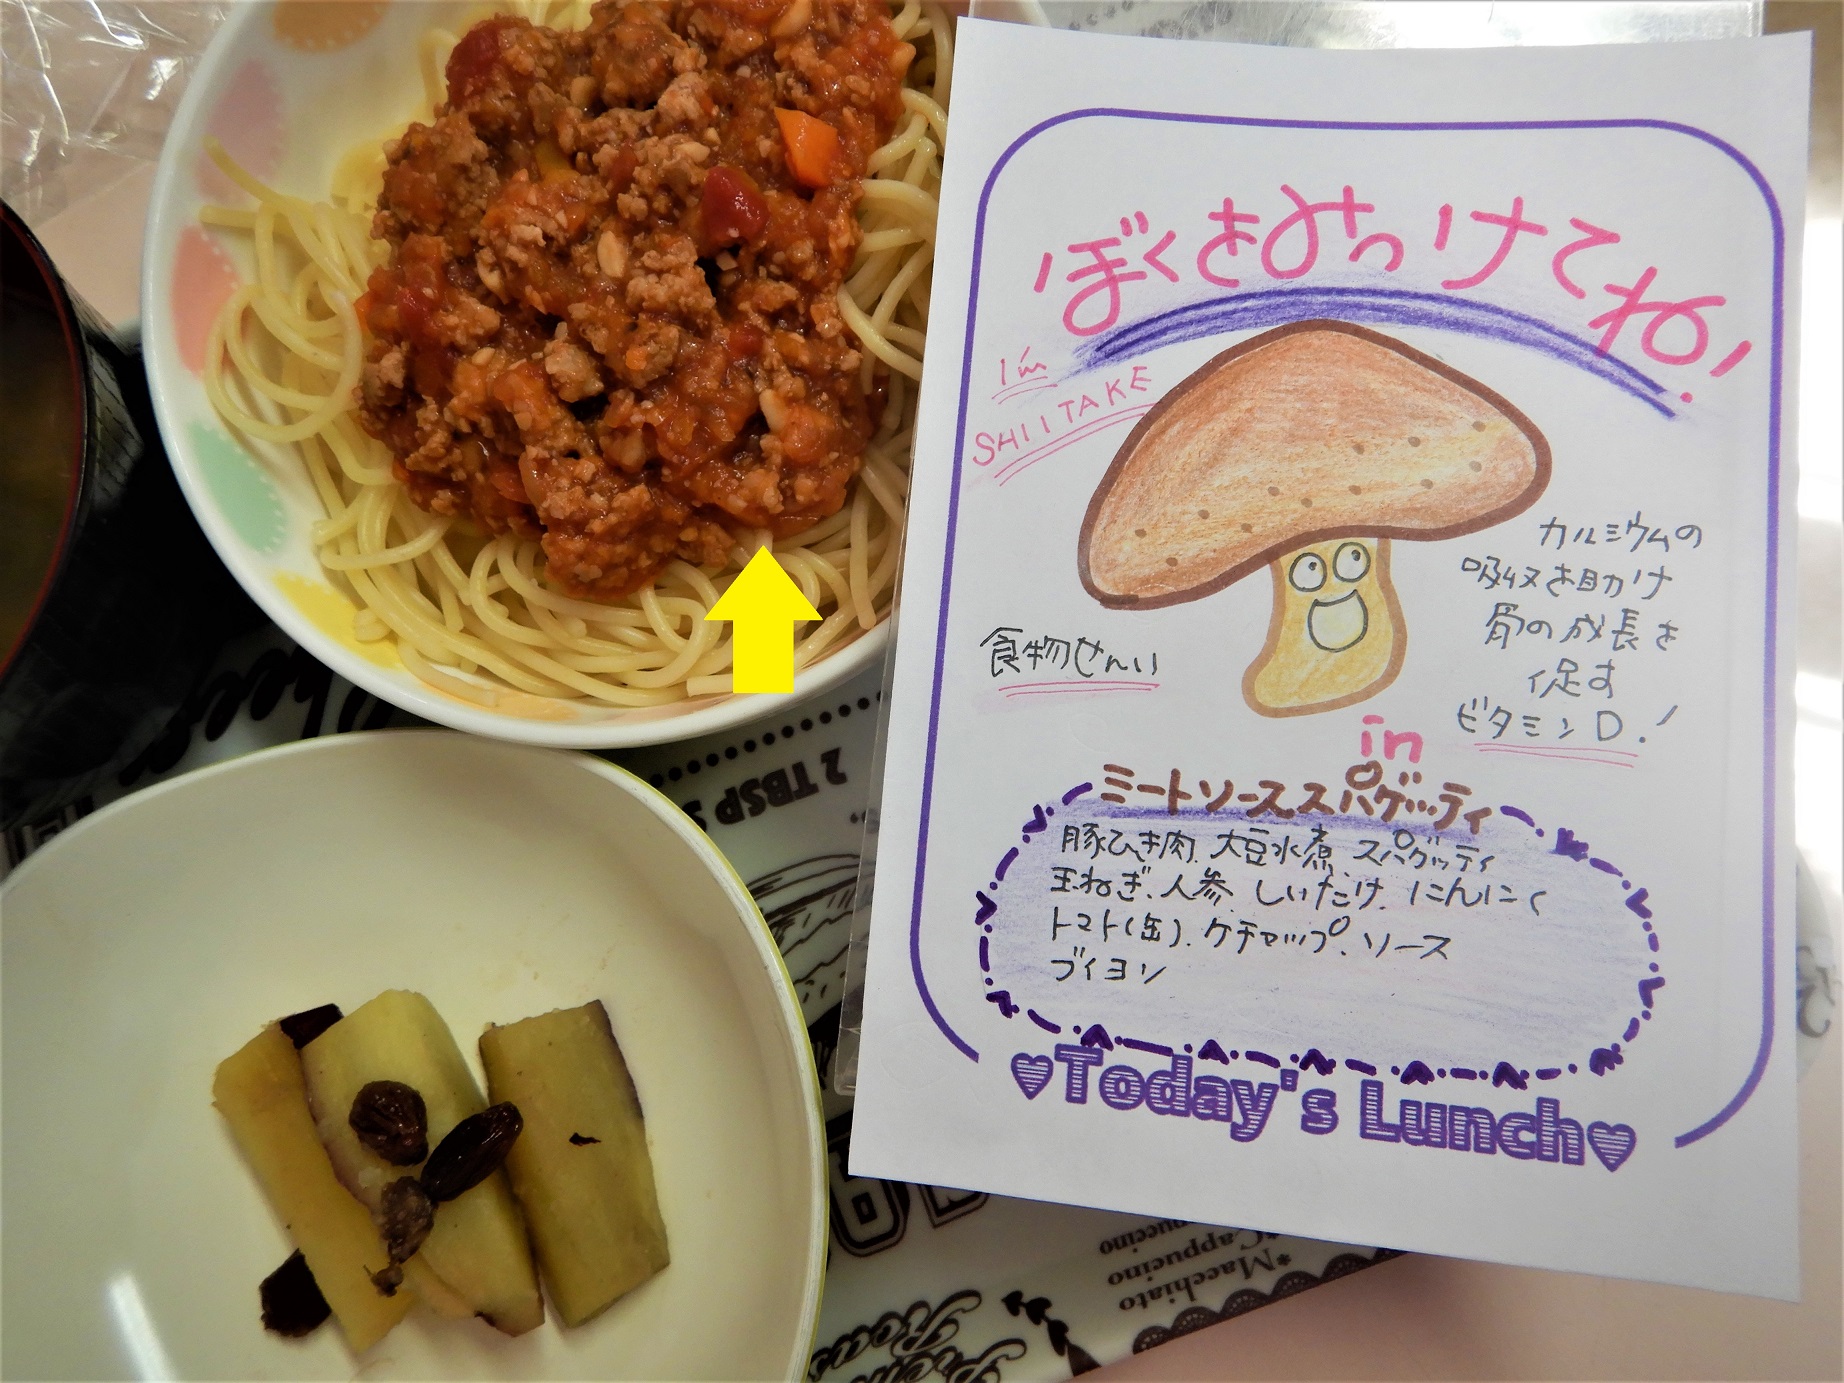 ぼくをみつけてね!
I'm
SHIITAKE
カルシウムの
吸収を助け
骨の成長を
促す
ビタミンD!
食物せんい
in
ミートソーススパゲッティ
豚ひき肉、大豆水煮、スパゲッティ
玉ねぎ、人参、しいたけ、にんにく
トマト(缶)、ケチャップ、ソース
ブイヨン
♥Today's Lunch♥
2 TBSP S
*Macchiato
*Cappucino